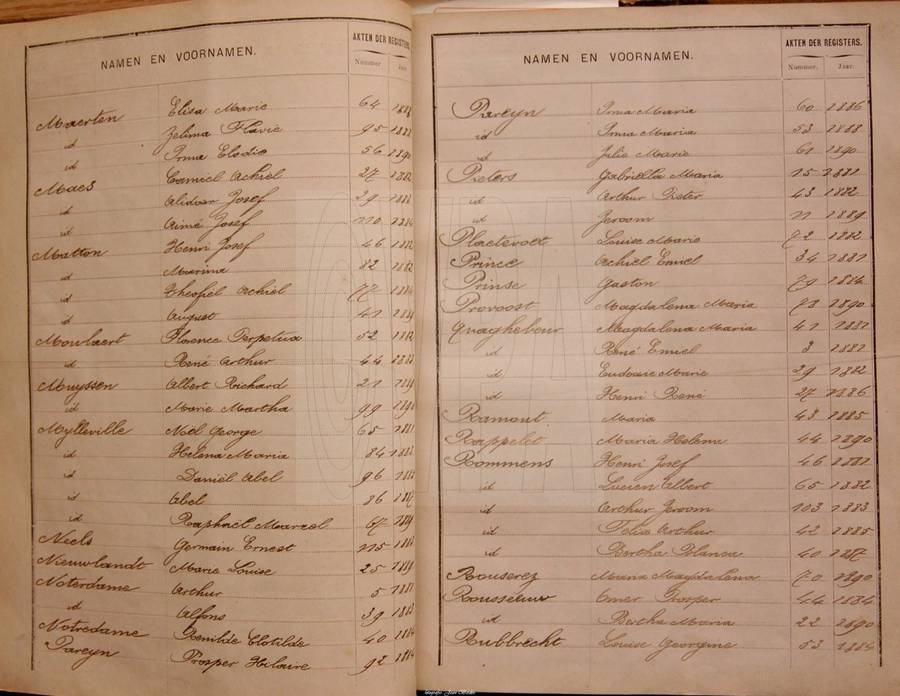 NAMEN EN VOORNAMEN. AKTEN DER REGISTERS.
Nummer Jaar
Maerten Elisa Marie 64
id Zelima Flavie 95 1888
id Irma Elodie 56 1890
Maes Camiel Achiel 27 1882
id Alidoor Josef 29
id Aimé Josef 110
Matton Henri Josef 46 1882
id Marina 82 1882
id Theophel Achiel 77
id August 41
Moulaert Florence Perpetua 52 1882
id René Arthur 44
Muyssen Albert Richard 21
id Marie Martha 99
Mylleville Noël George 65
id Helena Maria 84
id Daniël Abel 96
id Abel 86
id Raphaël Marcel 67
Neels Germain Ernest 115
Nieuwlandt Marie Louise 25
Noterdame Arthur 5
id Alfons 39
Notredame Romilde Clotilde 40 1884
Pareyn Prosper Hilaire 92 1884
NAMEN EN VOORNAMEN. AKTEN DER REGISTERS.
Nummer. Jaar.
Pareyn Irma Maria 60 1886
id Irma Maria 53 1888
id Julie Marie 61 1890
Pieters Gabriella Maria 15 1881
id Arthur Pieter 43 1882
id Jeroom 11 1889
Plaetevoet Louise Marie 72 1882
Prince Achiel Emiel 34 1881
Prinse Gaston 79 1884
Provoost Magdalena Maria 73 1890
Quaghebeur Magdalena Maria 41 1881
id René Emiel 3 1881
id Eudoxie Marie 29 1882
id Henri René 27 1886
Ramout Maria 43 1885
Rappelet Maria Helena 44 1890
Rommens Henri Josef 46 1881
id Lucien Albert 65 1882
id Arthur Jeroom 103 1883
id Felix Arthur 42 1885
id Bertha Blanca 40 1887
Rouserez Maria Magdalena 70 1890
Rousseeuw Omer Prosper 44 1884
id Bertha Maria 22 1890
Rubbrecht Louise Georgine 53 1884